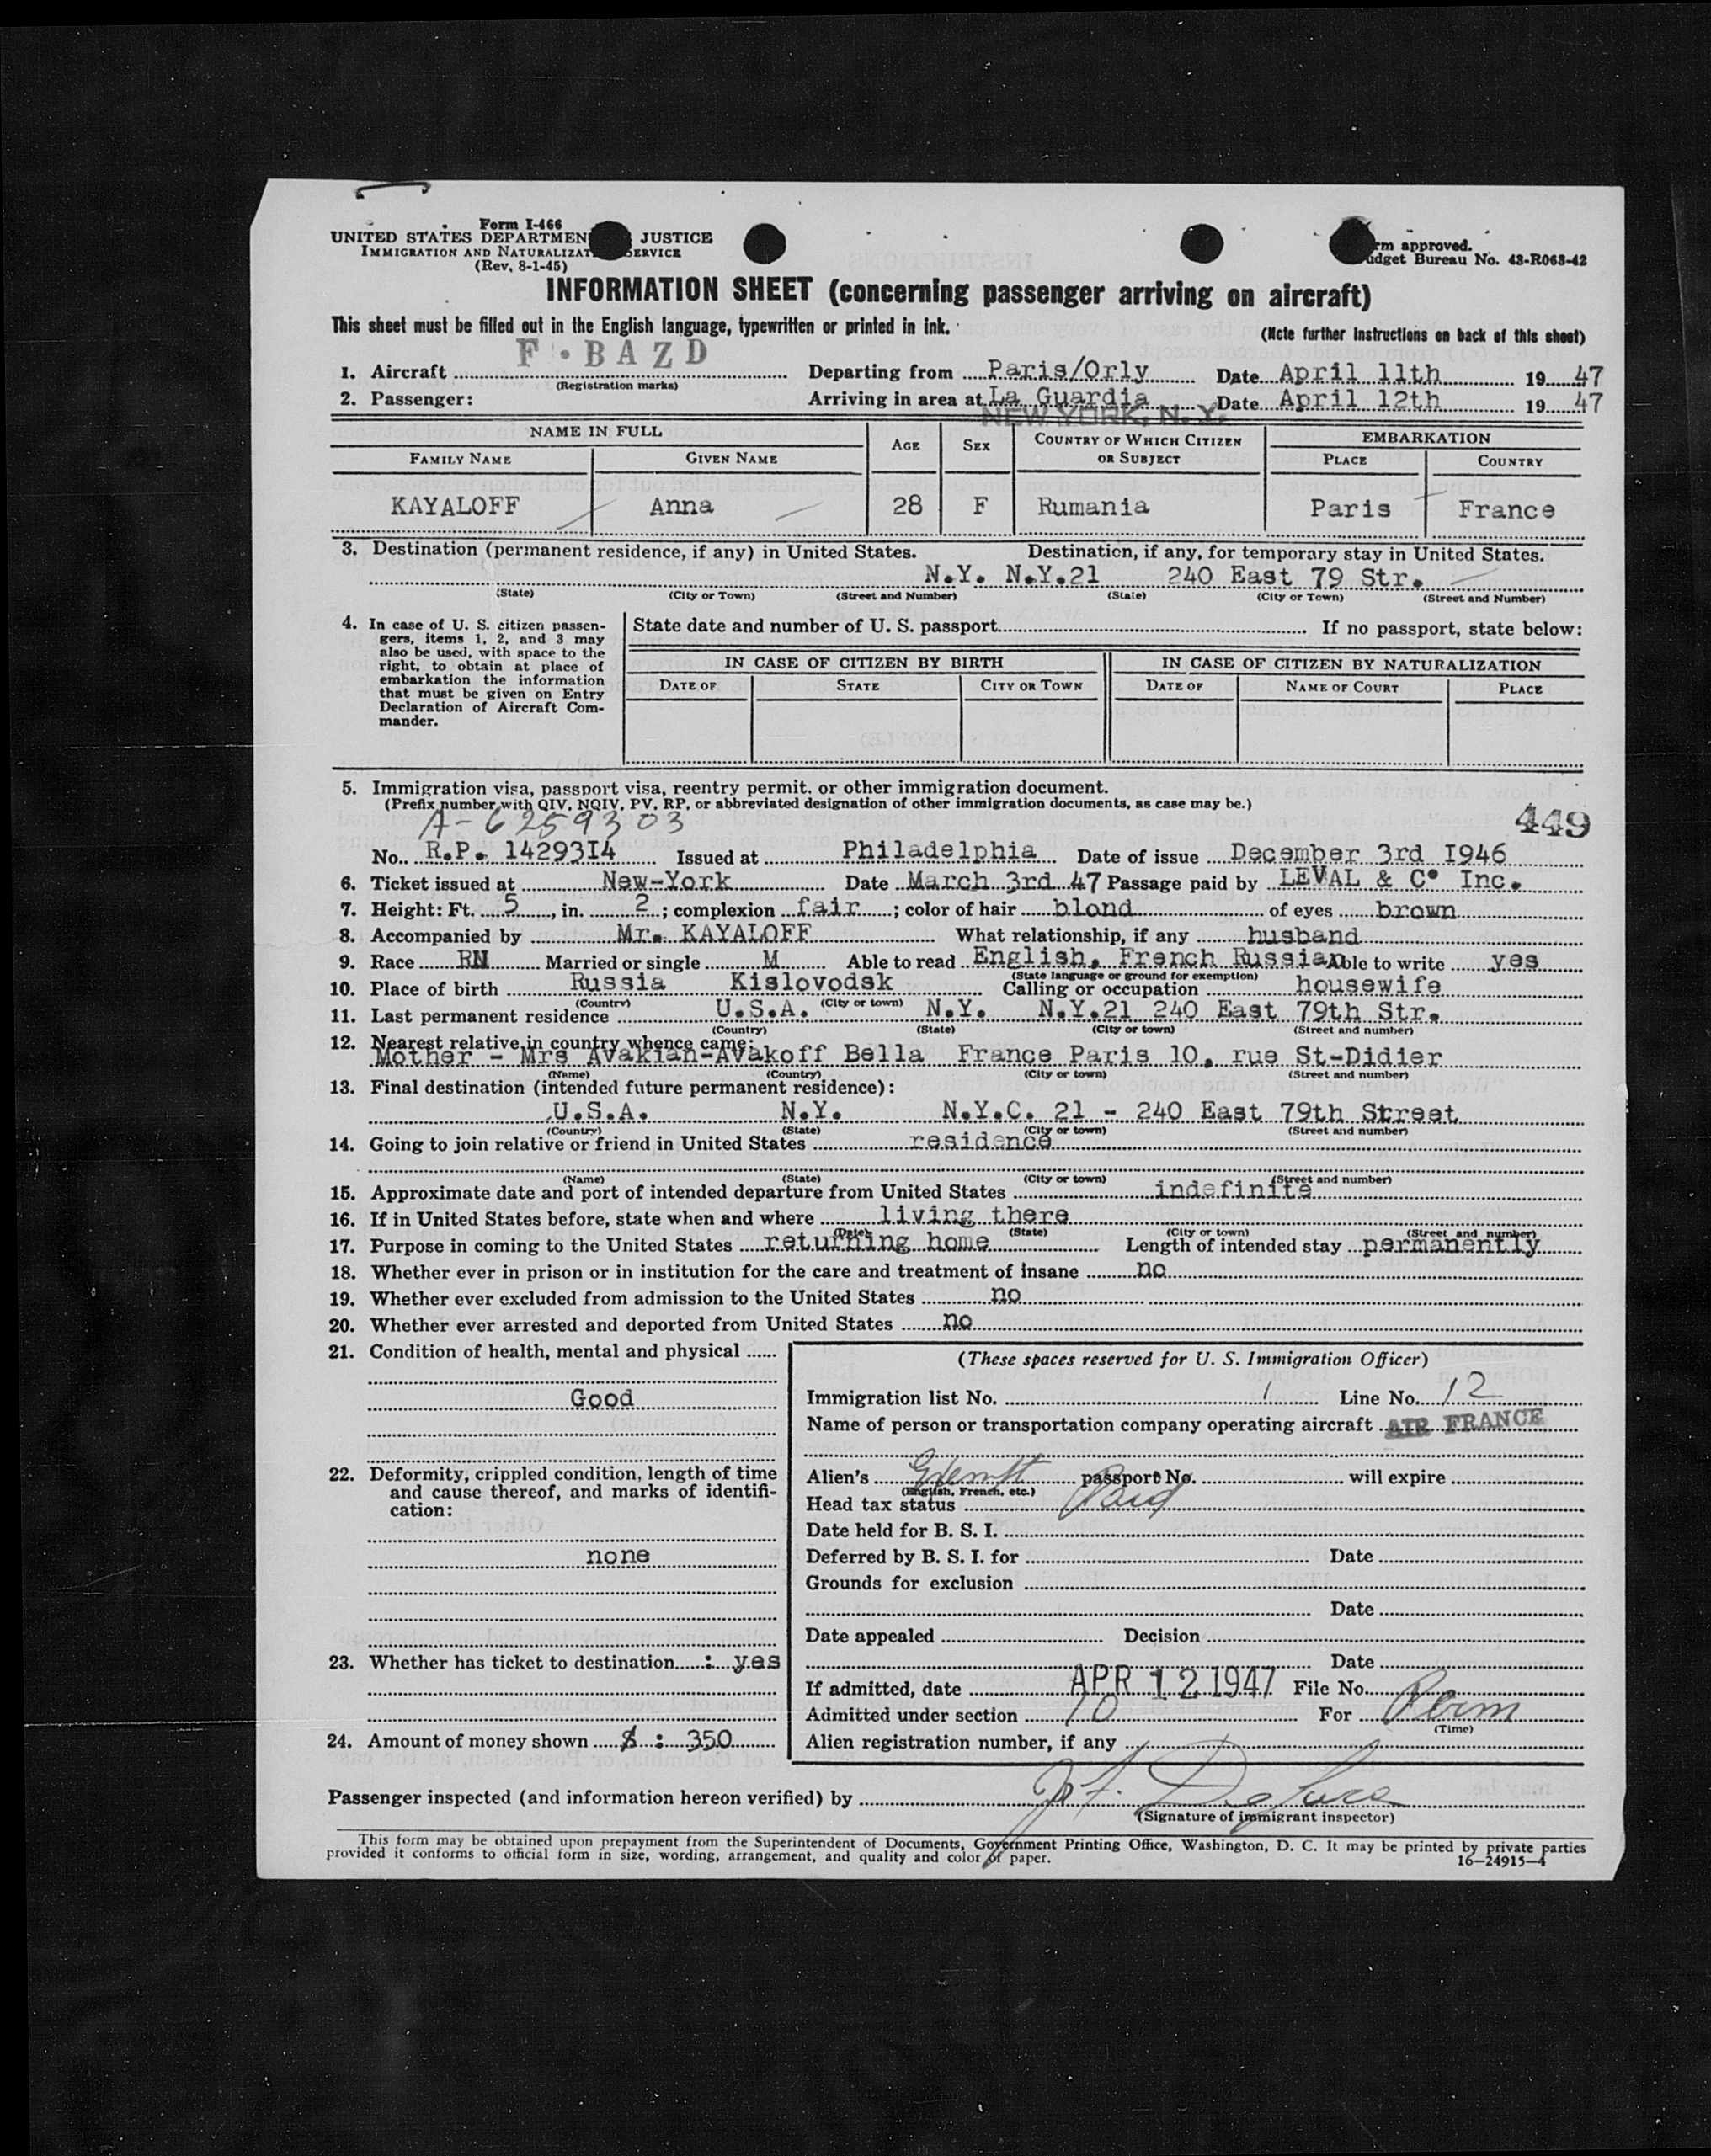 Form I-466
UNITED STATES DEPARTMEN JUSTICE
IMMIGRATION AND NATURALIZAT SERVICE
(Rev. 8-1-45)
rm approved.
udget Bureau No. 43-R063-42
INFORMATION SHEET (concerning passenger arriving on aircraft)
This sheet must be filled out in the English language, typewritten or printed in ink.
(Note further instructions on back of this sheet)
F·BAZD
1. Aircraft Departing from Paris/Orly Date April 11th 19 47
(Registration marks)
2. Passenger: Arriving in area at La Guardia Date April 12th 19 47
NEW YORK, N. Y.
NAME IN FULL AGE SEX COUNTRY OF WHICH CITIZEN OR SUBJECT EMBARKATION
FAMILY NAME GIVEN NAME PLACE COUNTRY
KAYALOFF Anna 28 F Rumania Paris France
3. Destination (permanent residence, if any) in United States. Destination, if any, for temporary stay in United States.
N.Y. N.Y.21 240 East 79 Str.
(State) (City or Town) (Street and Number) (State) (City or Town) (Street and Number)
4. In case of U. S. citizen passen-
gers, items 1, 2, and 3 may
also be used, with space to the
right, to obtain at place of
embarkation the information
that must be given on Entry
Declaration of Aircraft Com-
mander.
State date and number of U. S. passport If no passport, state below:
IN CASE OF CITIZEN BY BIRTH IN CASE OF CITIZEN BY NATURALIZATION
DATE OF STATE CITY OR TOWN DATE OF NAME OF COURT PLACE
5. Immigration visa, passport visa, reentry permit, or other immigration document.
(Prefix number with QIV, NQIV, PV, RP, or abbreviated designation of other immigration documents, as case may be.)
A-6259303
449
No. R.P. 14293I4 Issued at Philadelphia Date of issue December 3rd I946
6. Ticket issued at New-York Date March 3rd 47 Passage paid by LEVAL & C° Inc.
7. Height: Ft. 5, in. 2; complexion fair; color of hair blond of eyes brown
8. Accompanied by Mr. KAYALOFF What relationship, if any husband
9. Race RN Married or single M Able to read English, French Russian Able to write yes
(State language or ground for exemption)
10. Place of birth Russia Kislovodsk Calling or occupation housewife
(Country) (City or town)
11. Last permanent residence U.S.A. N.Y. N.Y.21 240 East 79th Str.
(Country) (State) (City or town) (Street and number)
12. Nearest relative in country whence came:
Mother - Mrs Avakian-Avakoff Bella France Paris 10, rue St-Didier
(Name) (Country) (City or town) (Street and number)
13. Final destination (intended future permanent residence):
U.S.A. N.Y. N.Y.C. 21 - 240 East 79th Street
(Country) (State) (City or town) (Street and number)
14. Going to join relative or friend in United States residence
(Name) (State) (City or town) (Street and number)
15. Approximate date and port of intended departure from United States indefinite
16. If in United States before, state when and where living there
(Date) (State) (City or town) (Street and number)
17. Purpose in coming to the United States returning home Length of intended stay permanently
18. Whether ever in prison or in institution for the care and treatment of insane no
19. Whether ever excluded from admission to the United States no
20. Whether ever arrested and deported from United States no
21. Condition of health, mental and physical
Good
22. Deformity, crippled condition, length of time
and cause thereof, and marks of identifi-
cation:
none
23. Whether has ticket to destination : yes
24. Amount of money shown $ : 350
(These spaces reserved for U. S. Immigration Officer)
Immigration list No. 1 Line No. 12
Name of person or transportation company operating aircraft AIR FRANCE
Alien's passport No. will expire
(English, French, etc.)
Head tax status Paid
Date held for B. S. I.
Deferred by B. S. I. for Date
Grounds for exclusion
Date
Date appealed Decision
Date
If admitted, date APR 12 1947 File No.
Admitted under section 10 For Perm
(Time)
Alien registration number, if any
Passenger inspected (and information hereon verified) by
(Signature of immigrant inspector)
This form may be obtained upon prepayment from the Superintendent of Documents, Government Printing Office, Washington, D. C. It may be printed by private parties
provided it conforms to official form in size, wording, arrangement, and quality and color of paper.
16—24915-4